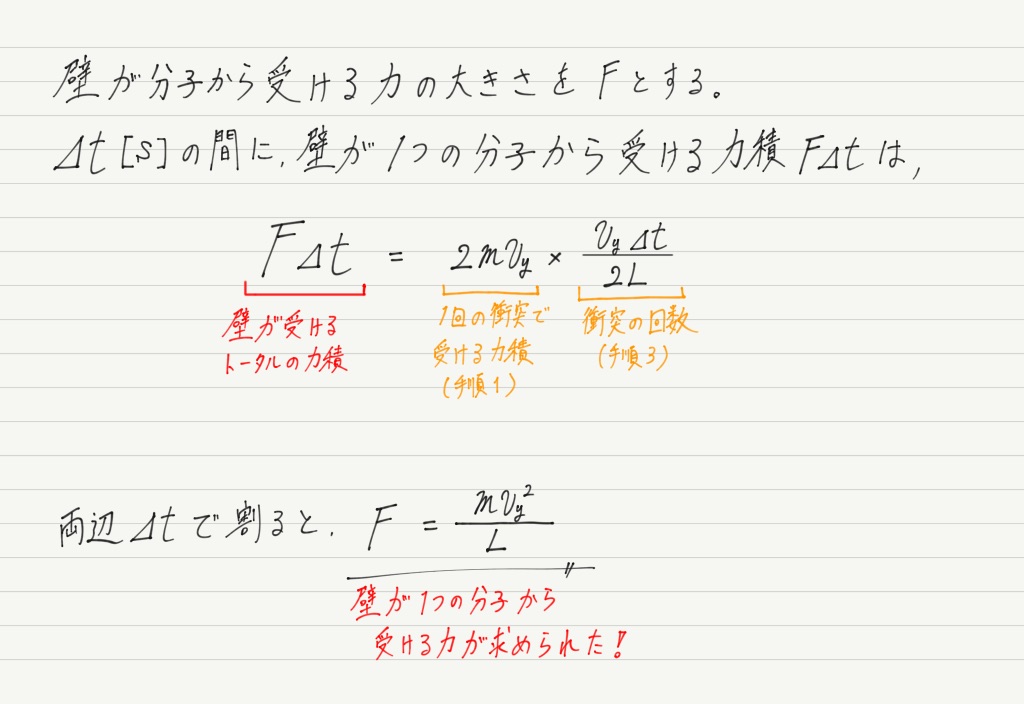 壁が分子から受ける力の大きさをFとする。
Δt[s]の間に、壁が1つの分子から受ける力積FΔtは,
FΔt = 2mv_y × v_yΔt/2L
壁が受ける
トータルの力積
1回の衝突で
受ける力積
(手順1)
衝突の回数
(手順3)
両辺Δtで割ると、F = mv_y²/L
壁が1つの分子から
受ける力が求められた!